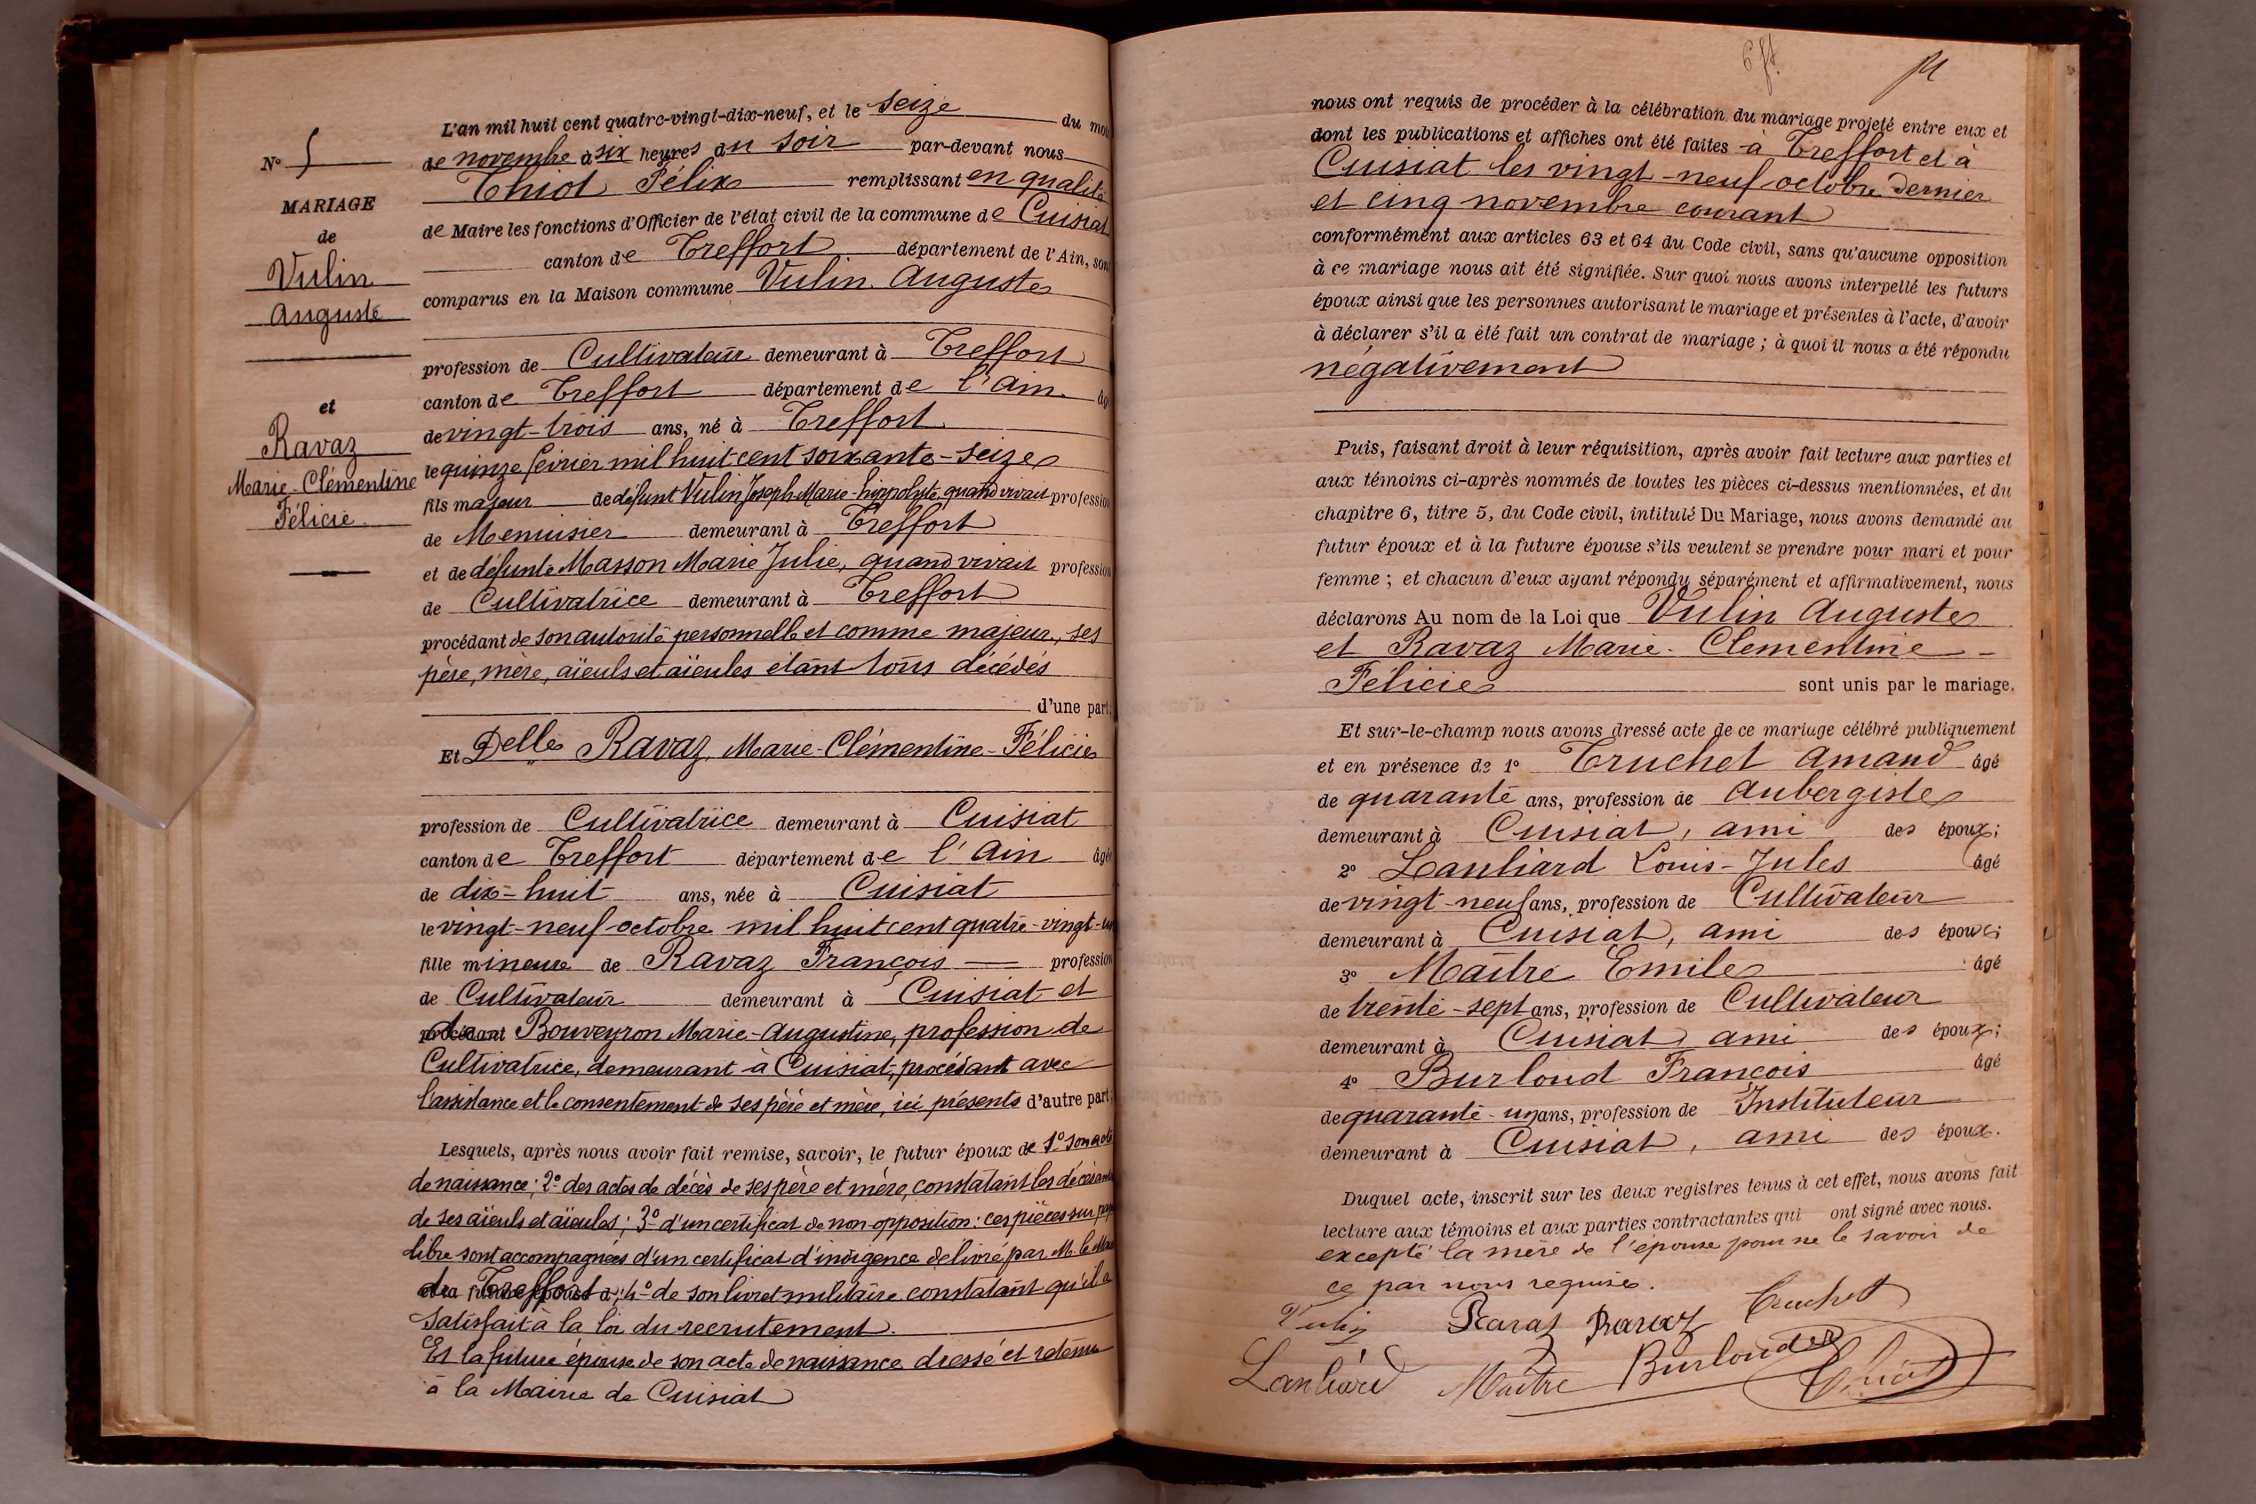 N° 5
MARIAGE
de
Vulin
Auguste
et
Ravaz
Marie-Clémentine
Félicie
L'an mil huit cent quatre-vingt-dix-neuf, et le seize du mois
de novembre à six heures du soir par-devant nous
Thiot Félix remplissant en qualité
de Maire les fonctions d'Officier de l'état civil de la commune de Cuisiat
canton de Treffort département de l'Ain, sont
comparus en la Maison commune Vulin Auguste
profession de Cultivateur demeurant à Treffort
canton de Treffort département de l'Ain âgé
de vingt-trois ans, né à Treffort
le quinze février mil huit cent soixante-seize
fils majeur de défunt Vulin Joseph Marie-hippolyte, quand vivait profession
de Menuisier demeurant à Treffort
et de défunte Masson Marie Julie, quand vivait profession
de Cultivatrice demeurant à Treffort
procédant de son autorité personnelle et comme majeur, ses
père, mère, aïeuls et aïeules étant tous décédés
d'une part;
Et Delle Ravaz Marie-Clémentine-Félicie
profession de Cultivatrice demeurant à Cuisiat
canton de Treffort département de l'Ain âgée
de dix-huit ans, née à Cuisiat
le vingt-neuf octobre mil huit cent quatre-vingt-un
fille mineure de Ravaz François profession
de Cultivateur demeurant à Cuisiat et
de Bouveyron Marie-Augustine, profession de
Cultivatrice, demeurant à Cuisiat, procédant avec
l'assistance et le consentement de ses père et mère, ici présents d'autre part;
Lesquels, après nous avoir fait remise, savoir, le futur époux de 1° son acte
de naissance; 2° des actes de décès de ses père et mère, constatant les décès
de ses aïeuls et aïeules; 3° d'un certificat de non-opposition: ces pièces sur papier
libre sont accompagnées d'un certificat d'indigence délivré par M. le Maire
de Treffort; 4° de son livret militaire constatant qu'il a
satisfait à la loi du recrutement.
Et la future épouse de son acte de naissance dressé et retenu
à la Mairie de Cuisiat
nous ont requis de procéder à la célébration du mariage projeté entre eux et
dont les publications et affiches ont été faites à Treffort et à
Cuisiat les vingt-neuf octobre dernier
et cinq novembre courant
conformément aux articles 63 et 64 du Code civil, sans qu'aucune opposition
à ce mariage nous ait été signifiée. Sur quoi nous avons interpellé les futurs
époux ainsi que les personnes autorisant le mariage et présentes à l'acte, d'avoir
à déclarer s'il a été fait un contrat de mariage; à quoi il nous a été répondu
négativement
Puis, faisant droit à leur réquisition, après avoir fait lecture aux parties et
aux témoins ci-après nommés de toutes les pièces ci-dessus mentionnées, et du
chapitre 6, titre 5, du Code civil, intitulé Du Mariage, nous avons demandé au
futur époux et à la future épouse s'ils veulent se prendre pour mari et pour
femme; et chacun d'eux ayant répondu séparément et affirmativement, nous
déclarons Au nom de la Loi que Vulin Auguste
et Ravaz Marie-Clementine-
Félicie sont unis par le mariage.
Et sur-le-champ nous avons dressé acte de ce mariage célébré publiquement
et en présence de 1° Truchet Amand âgé
de quarante ans, profession de Aubergiste
demeurant à Cuisiat, ami des époux;
2° Lanliard Louis-Jules âgé
de vingt-neuf ans, profession de Cultivateur
demeurant à Cuisiat, ami des époux;
3° Maître Emile âgé
de trente-sept ans, profession de Cultivateur
demeurant à Cuisiat, ami des époux;
4° Burloud François âgé
de quarante-un ans, profession de Instituteur
demeurant à Cuisiat, ami des époux.
Duquel acte, inscrit sur les deux registres tenus à cet effet, nous avons fait
lecture aux témoins et aux parties contractantes qui ont signé avec nous.
excepté la mère de l'épouse pour ne le savoir de
ce par nous requise.
Vulin Ravaz Ravaz Truchet
Lanliard Maître Burloud Thiot